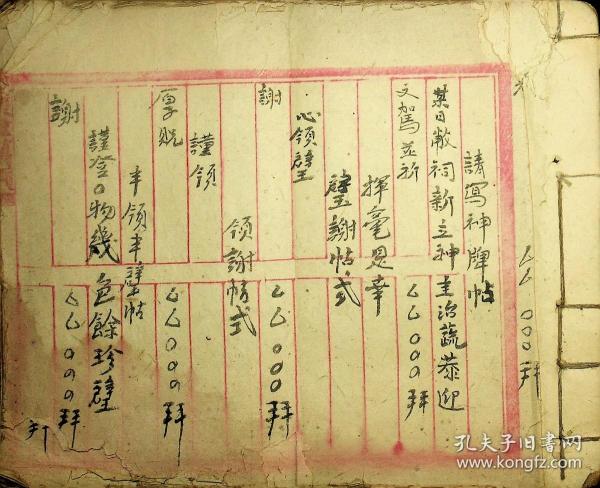 厶厶〇〇〇拜
請寫神牌帖
某日敝祠新立神主治蔬恭迎
文駕並祈 厶厶〇〇〇拜
揮毫恩幸
璧謝帖式
心領璧
謝 厶厶〇〇〇拜
領謝帖式
謹領
厚貺 厶厶〇〇〇拜
半領半璧帖
謹登〇物幾色餘珍璧
謝 厶厶〇〇〇拜
孔夫子旧书网
www.kongfz.com